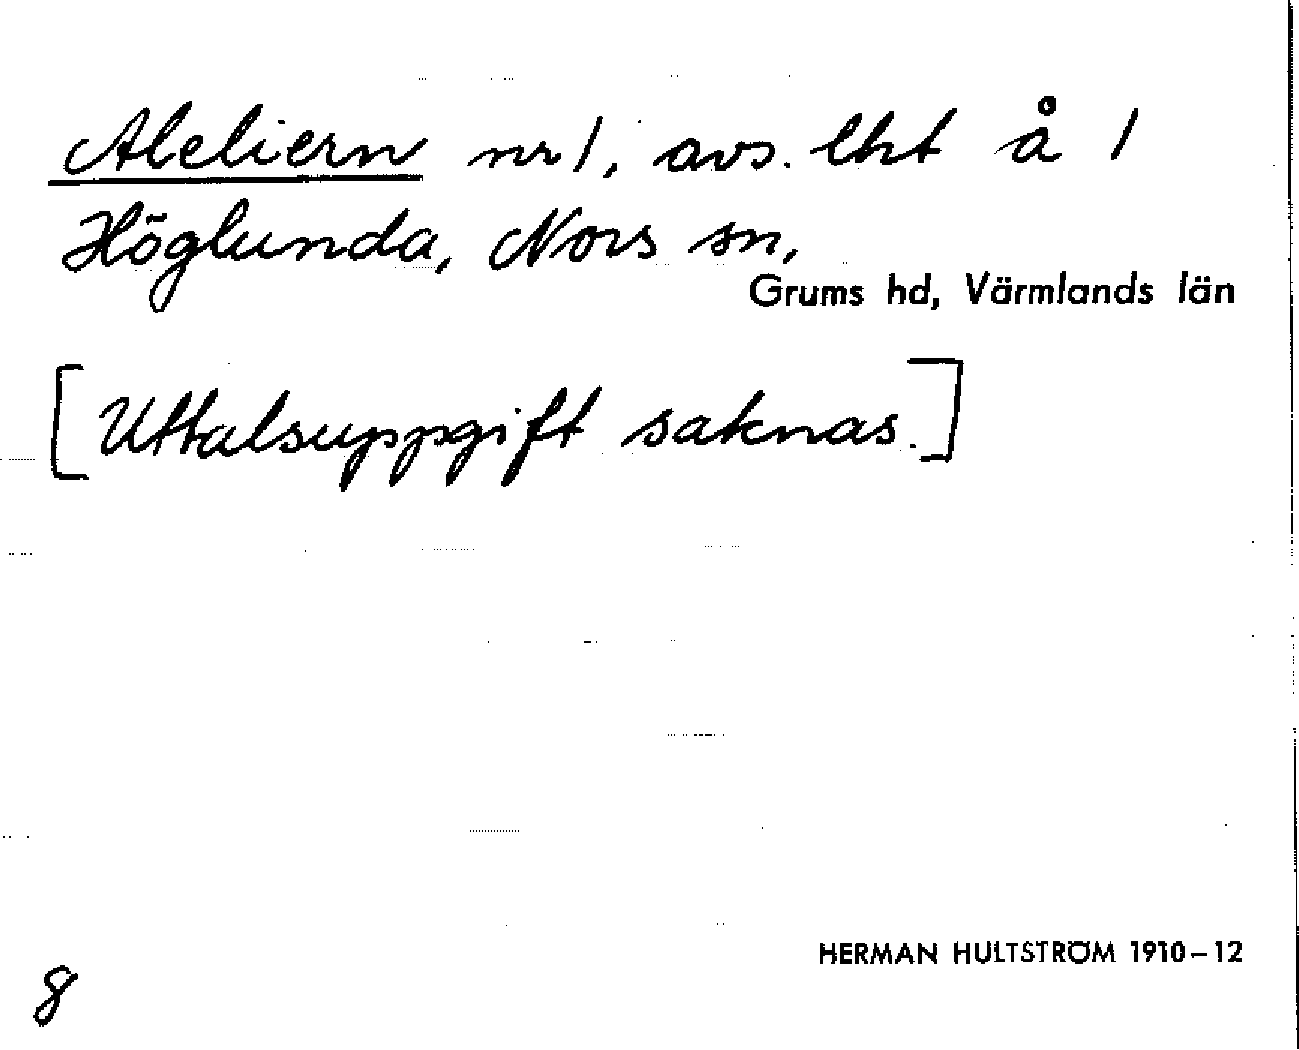 Aleliern nr 1, avs. lht å 1
Höglunda, Nors sn,
Grums hd, Värmlands län
[Uttalsuppgift saknas.]
HERMAN HULTSTRÖM 1910–12
8